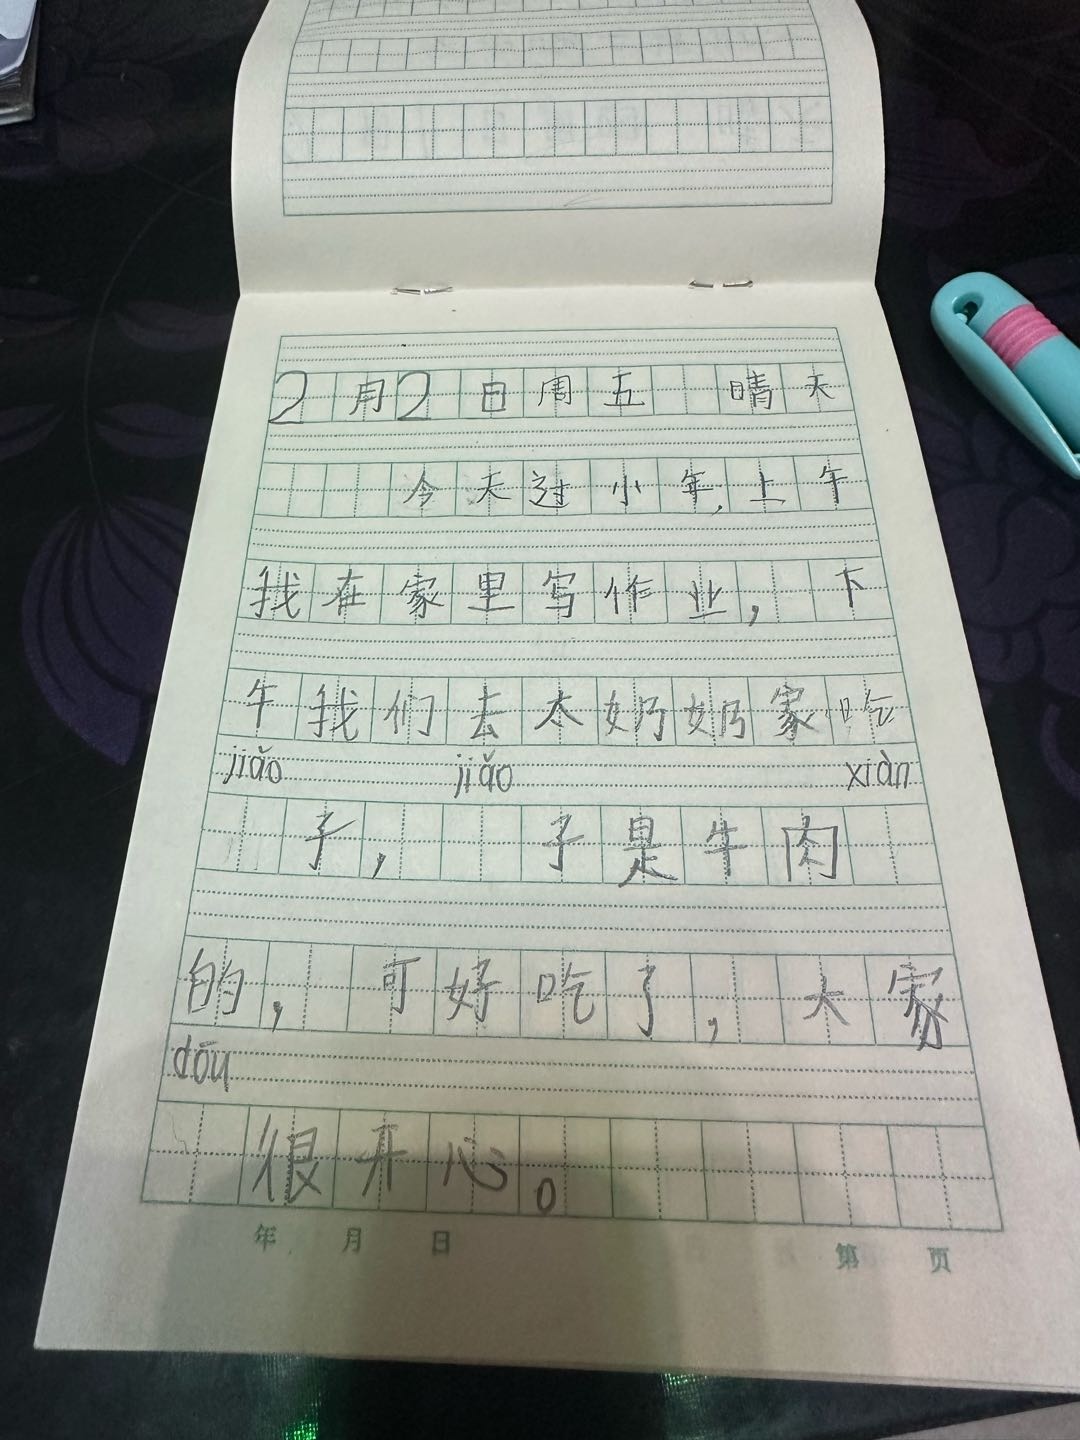 2月2日周五 晴天
今天过小年，上午
我在家里写作业，下
午我们去太奶奶家吃
jiǎo jiǎo xiàn
子， 子是牛肉
的，可好吃了，大家
dōu
很开心。
年 月 日 第 页